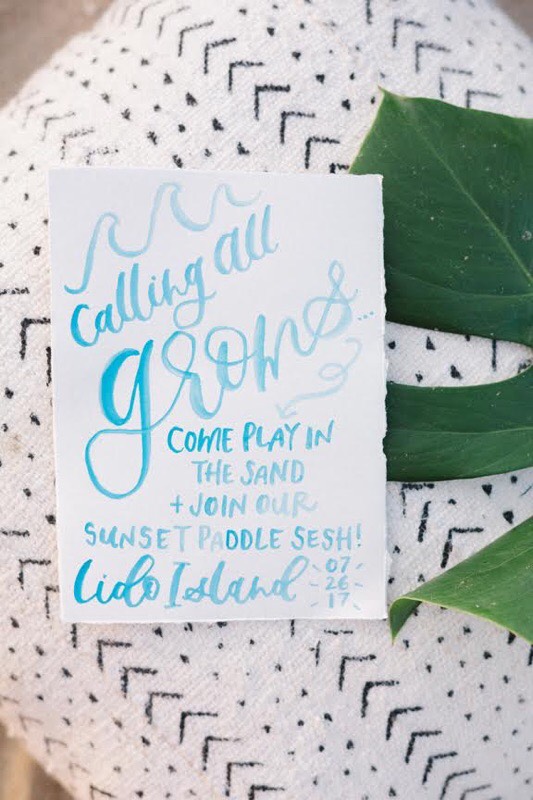 Calling all
groms...
COME PLAY IN
THE SAND
+ JOIN OUR
SUNSET PADDLE SESH!
Lido Island
07
26
17